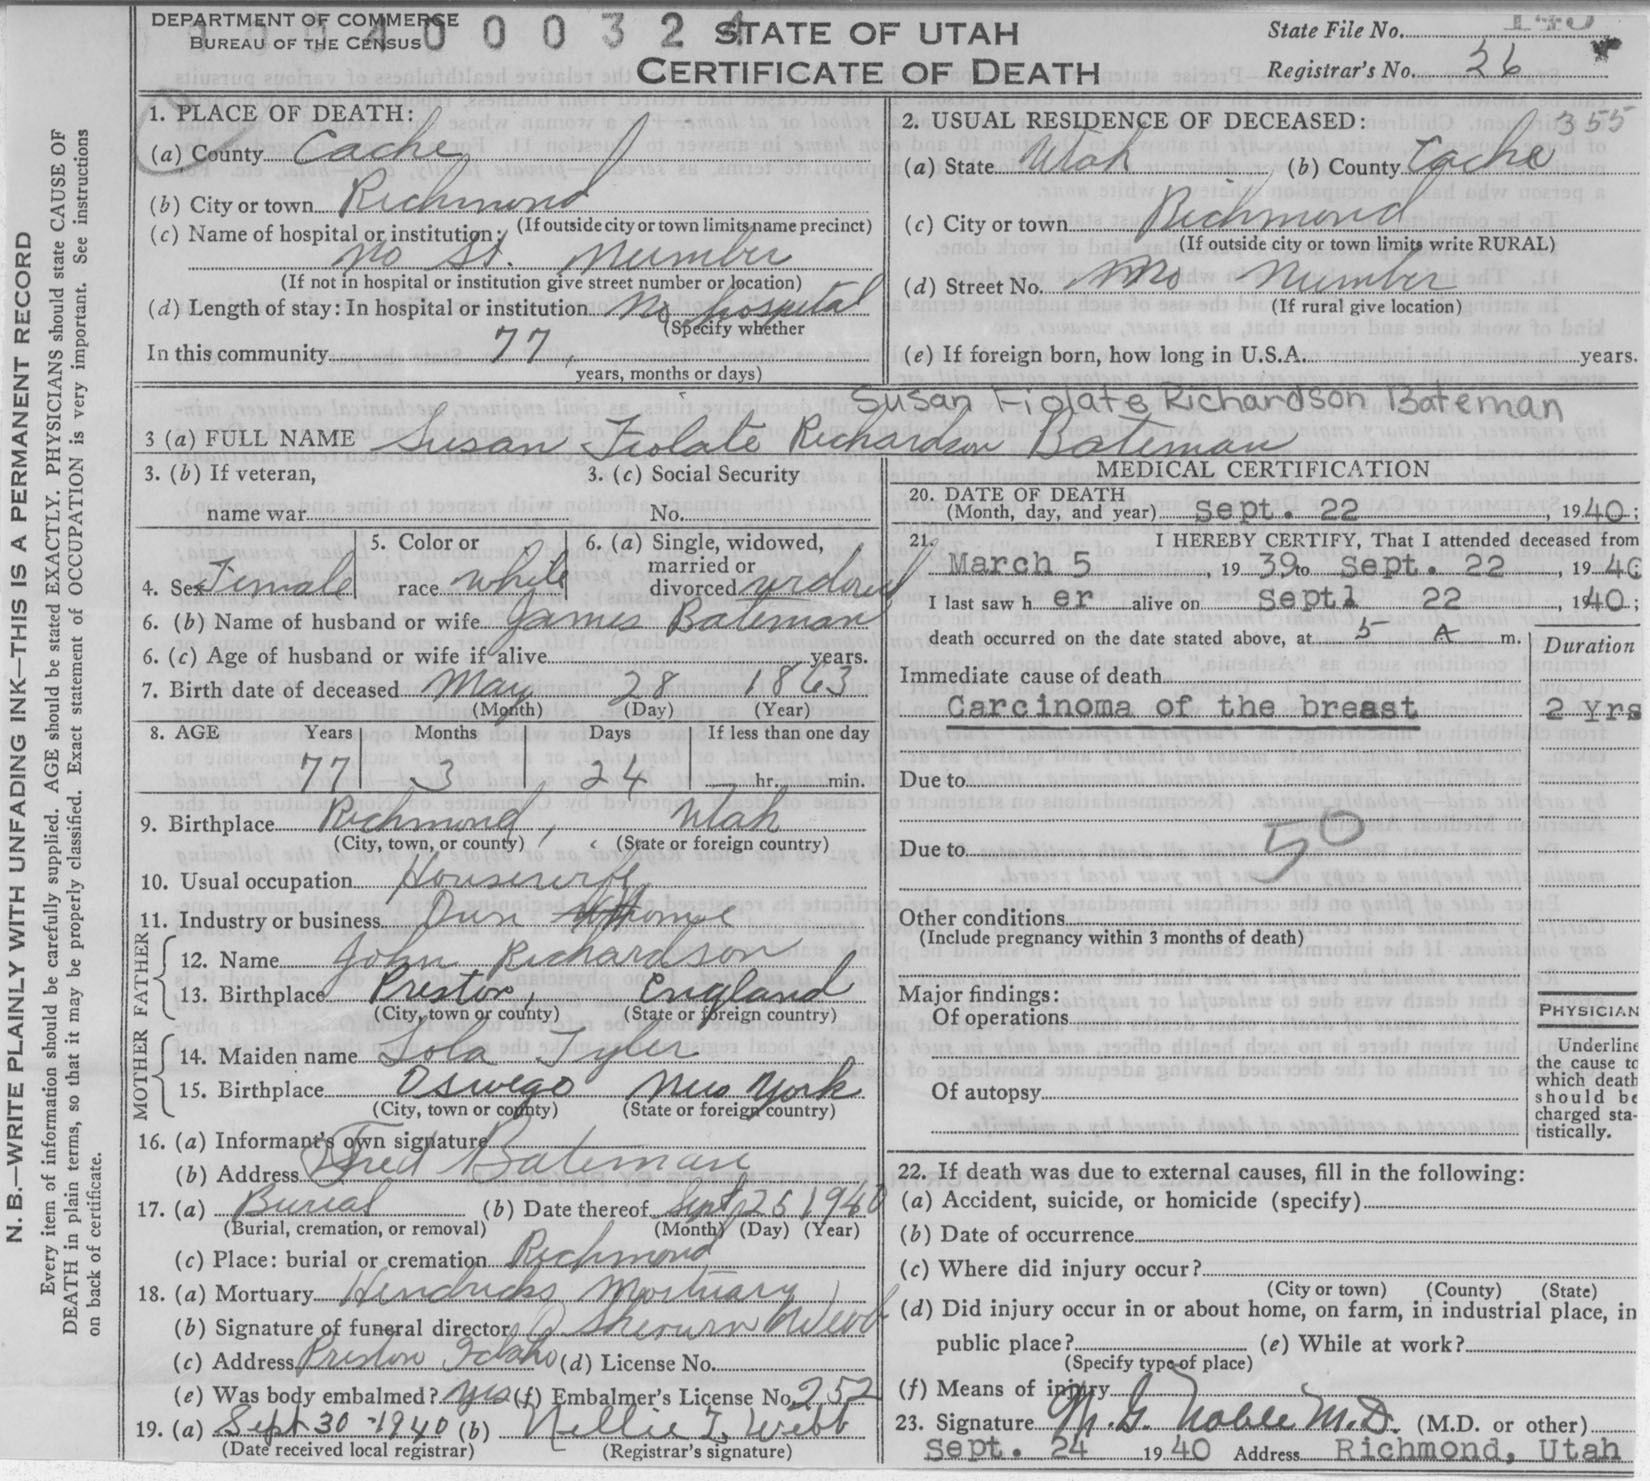 DEPARTMENT OF COMMERCE
BUREAU OF THE CENSUS
0 0 0 3 2 4
STATE OF UTAH
CERTIFICATE OF DEATH
State File No. 140
Registrar's No. 26
N. B.—WRITE PLAINLY WITH UNFADING INK—THIS IS A PERMANENT RECORD
Every item of information should be carefully supplied. AGE should be stated EXACTLY. PHYSICIANS should state CAUSE OF
DEATH in plain terms, so that it may be properly classified. Exact statement of OCCUPATION is very important. See instructions
on back of certificate.
1. PLACE OF DEATH:
(a) County Cache
(b) City or town Richmond
(If outside city or town limits name precinct)
(c) Name of hospital or institution:
No St. Number
(If not in hospital or institution give street number or location)
(d) Length of stay: In hospital or institution No hospital
(Specify whether
In this community 77,
years, months or days)
2. USUAL RESIDENCE OF DECEASED: 355
(a) State Utah (b) County Cache
(c) City or town Richmond
(If outside city or town limits write RURAL)
(d) Street No. No Number
(If rural give location)
(e) If foreign born, how long in U.S.A. years.
Susan Fiolate Richardson Bateman
3 (a) FULL NAME Susan Fiolate Richardson Bateman
3. (b) If veteran, 3. (c) Social Security
name war No.
4. Sex Female 5. Color or race white 6. (a) Single, widowed, married or divorced widowed
6. (b) Name of husband or wife James Bateman
6. (c) Age of husband or wife if alive years.
7. Birth date of deceased May 28 1863
(Month) (Day) (Year)
8. AGE Years Months Days If less than one day
77 3 24 hr. min.
9. Birthplace Richmond, Utah
(City, town, or county) (State or foreign country)
10. Usual occupation Housewife
11. Industry or business Own Home
FATHER
12. Name John Richardson
13. Birthplace Preston, England
(City, town or county) (State or foreign country)
MOTHER
14. Maiden name Lola Tyler
15. Birthplace Oswego New York
(City, town or county) (State or foreign country)
16. (a) Informant's own signature
(b) Address Fred Bateman
17. (a) Burial (b) Date thereof Sept 26 1940
(Burial, cremation, or removal) (Month) (Day) (Year)
(c) Place: burial or cremation Richmond
18. (a) Mortuary Hendricks Mortuary
(b) Signature of funeral director Webb
(c) Address Preston Idaho (d) License No.
(e) Was body embalmed? yes (f) Embalmer's License No. 252
19. (a) Sept 30 - 1940 (b) Nellie T. Webb
(Date received local registrar) (Registrar's signature)
MEDICAL CERTIFICATION
20. DATE OF DEATH
(Month, day, and year) Sept. 22, 1940;
21. I HEREBY CERTIFY, That I attended deceased from
March 5, 19 39 to Sept. 22, 1940
I last saw h er alive on Sept1 22, 1940;
death occurred on the date stated above, at 5 A m.
Duration
Immediate cause of death
Carcinoma of the breast 2 Yrs
Due to
Due to 50
Other conditions
(Include pregnancy within 3 months of death)
Major findings:
Of operations
Of autopsy
PHYSICIAN
Underline
the cause to
which death
should be
charged sta-
tistically.
22. If death was due to external causes, fill in the following:
(a) Accident, suicide, or homicide (specify)
(b) Date of occurrence
(c) Where did injury occur?
(City or town) (County) (State)
(d) Did injury occur in or about home, on farm, in industrial place, in
public place? (e) While at work?
(Specify type of place)
(f) Means of injury
23. Signature M. G. Noble M.D. (M.D. or other)
Sept. 24 1940 Address Richmond, Utah